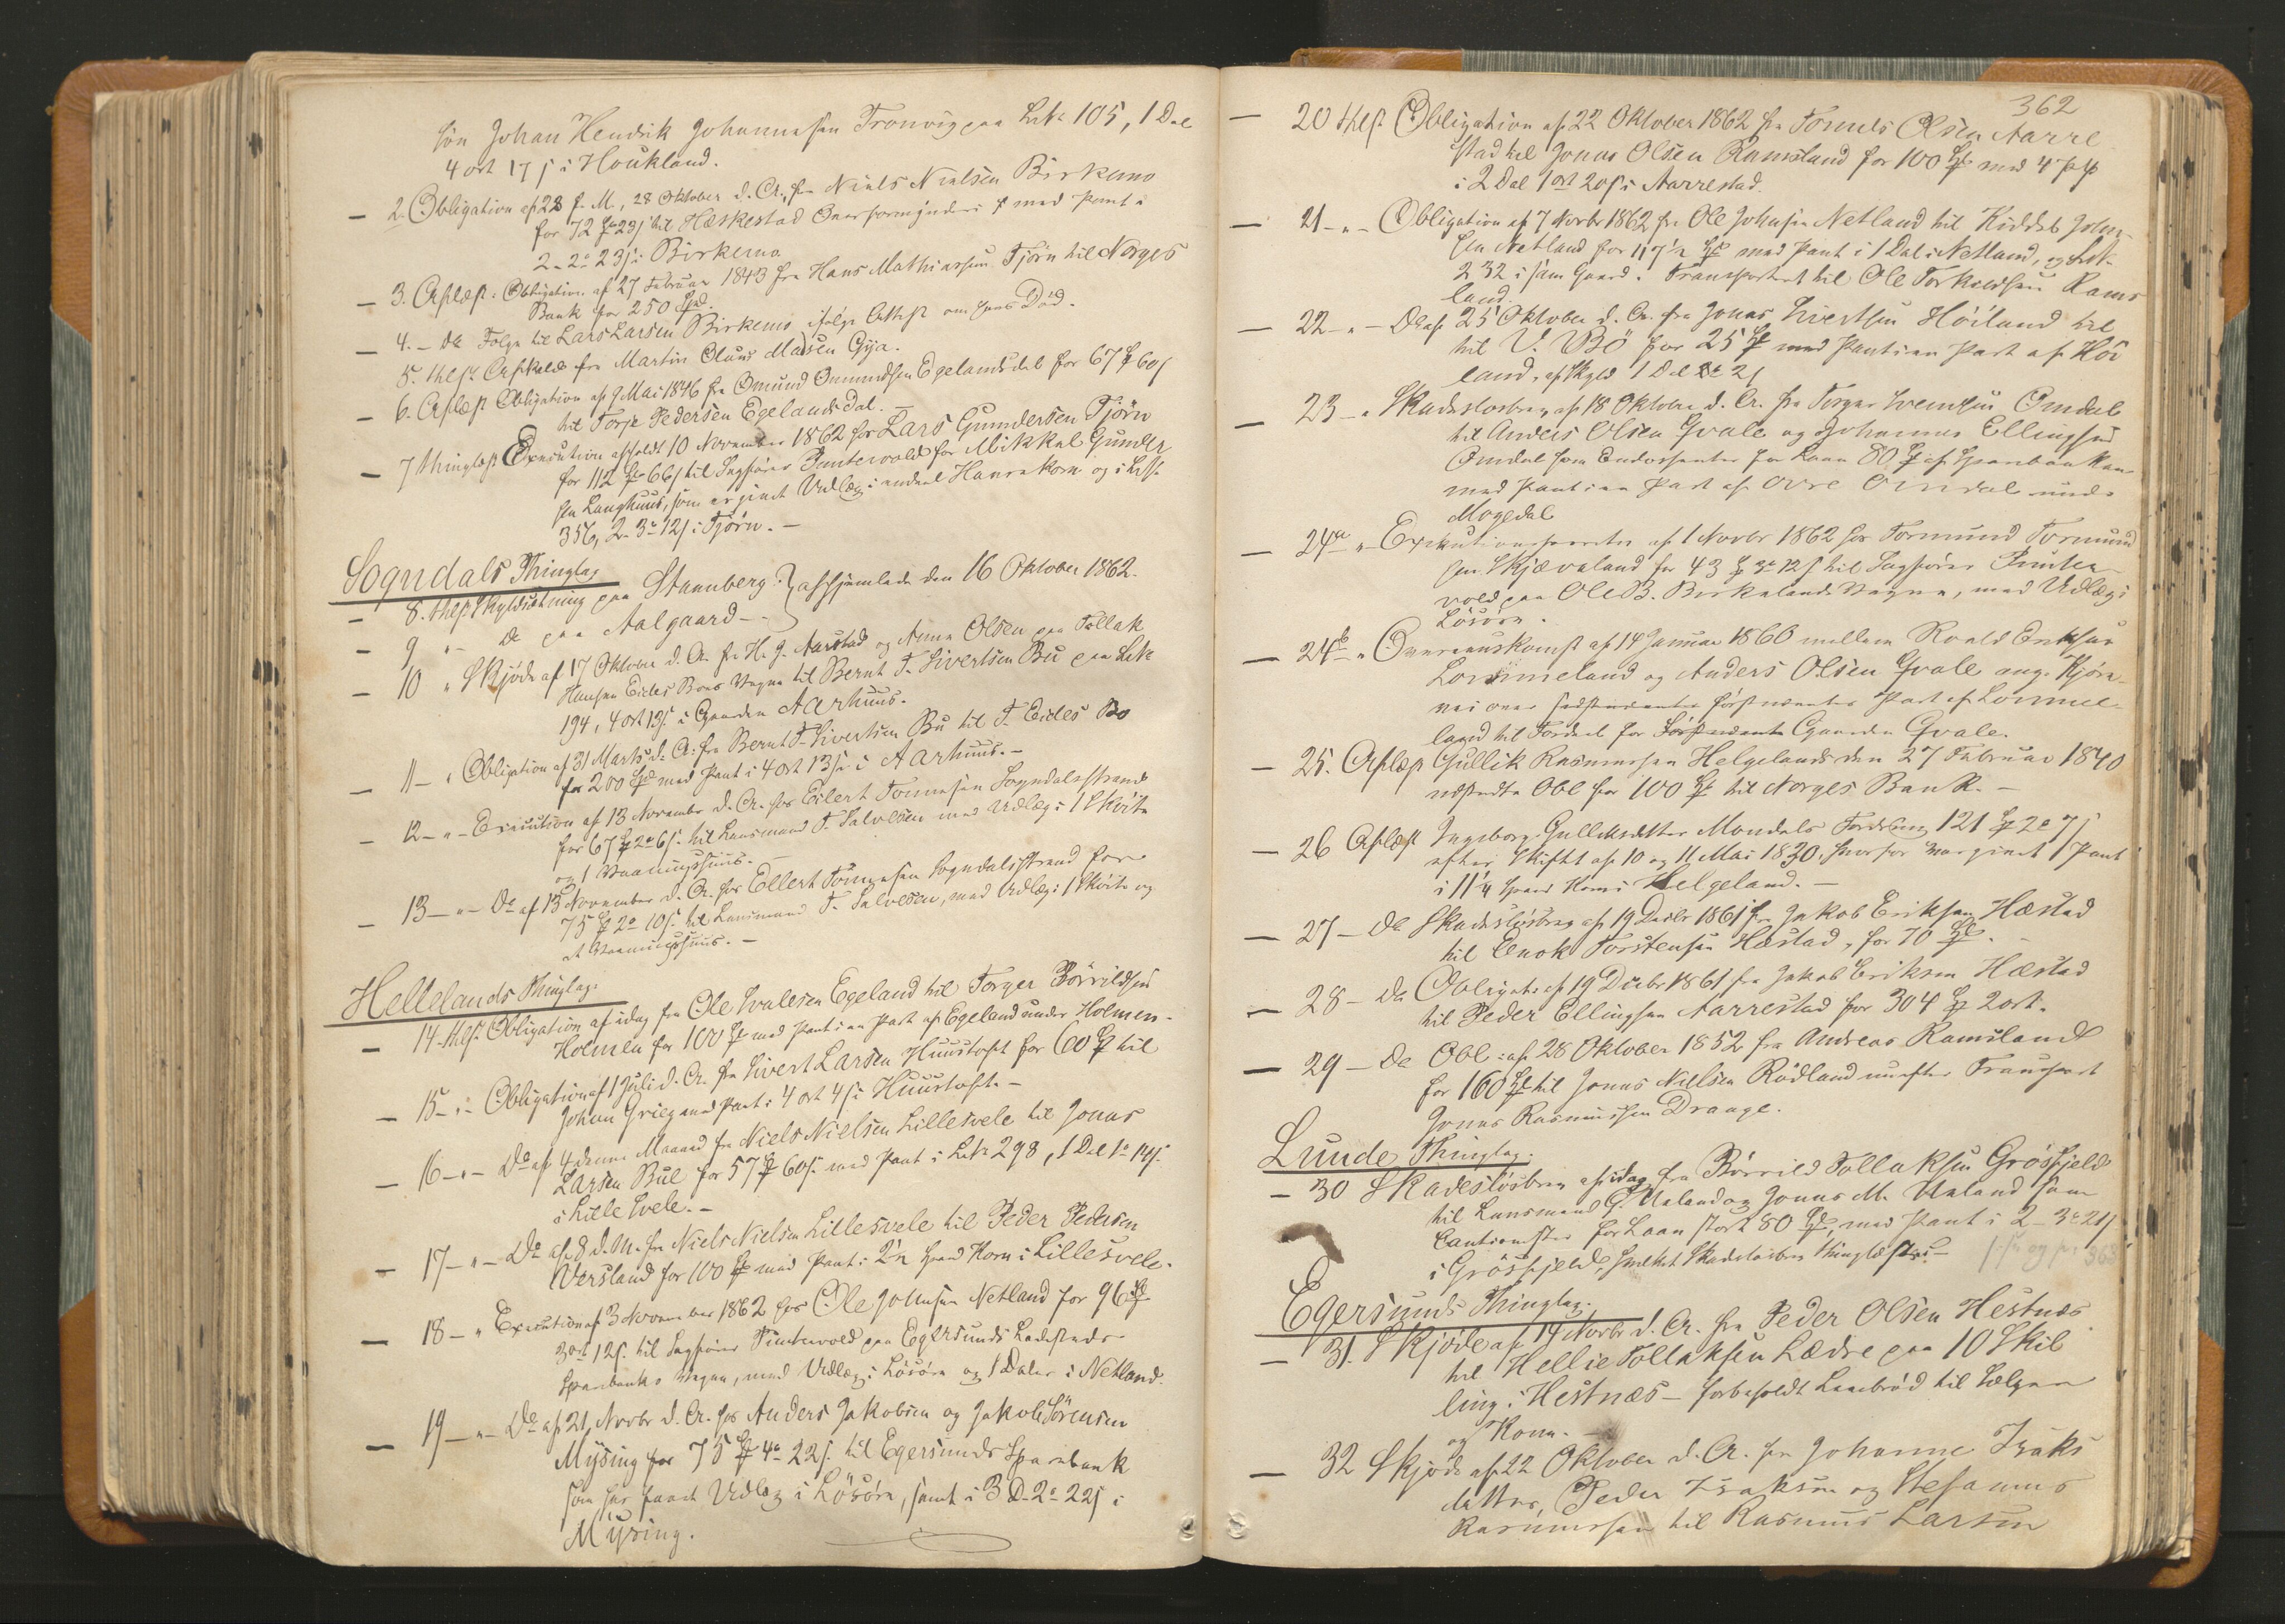 søn Johan Hendrik Johannesen Tronvig paa Lit: 105, 1 Dal
4 ort 17 s i Houkland.
— 2. Obligation af 28 f. M., 28 Oktober d. A., fra Niels Nielsen Birkemo
for 72 Sp 29 s til Heskestad Overformynderi med Pant i
2 - 2 o 23 s i Birkemo
— 3. Aflæst: Obligation af 27 Februar 1843 fra Hans Mathiassen Tjørn til Norges
Bank for 250 Spd.
— 4. - do Følge til Lars Larsen Birkemo ifølge Attest om hans Død.
5. thlst. Afkald fra Martin Olaus Madsen Gya.
— 6. Aflæst Obligation af 9 Mai 1846 fra Omund Omundsen Egelandsdal for 67 Sp 60 s
til Torje Pedersen Egelandsdal.
— 7 thinglæst Execution afholdt 10 November 1862 hos Lars Gundersen Tjørn
for 112 Sp 66 s til Sagfører Puntervold for Mikkel Gunder
sen Langhuus, som er gjort Udlæg i endeel Havrekorn og i Lit:
356, 2 - 3 o 12 s i Tjørn. —
Sogndals Thinglag
— 8. thlst Skyldsætning paa Stannberg } afhjemlede den 16 Oktober 1862.
— 9 " - do paa Aalgaard -
— 10 " Skjøde af 17 Oktober d. A. fra H. J. Aarstad og Anna Olsen paa Tollak
Hansen Eides Boes Vegne til Bernt T. Sivertsen Bu paa Lit:
194, 4 ort 13 s. i Gaarden Aarhuus.
— 11 - " Obligation af 31 Marts d. A. fra Bernt T. Sivertsen Bu til T. Eides Bo
for 200 Spd med Pant i 4 ort 13 s i Aarhuus. -
— 12 - " - Execution af 13 November d. A. hos Eilert Tønnesen Sogndalsstrand
for 67 Sp 2 o 6 s. til Lensmand T. Salvesen med Udlæg i 1 Skøite
og 1 Vaaningshuus. —
— 13 - " - Do af 13 November d. A. hos Ellert Tønnesen Sogndalsstrand for
75 Sp 2 o 10 s. til Lensmand T. Salvesen, med Udlæg i 1 Skøite og
et Vaaningshuus. —
Hellelands Thinglag.
— 14. thlst. Obligation af idag fra Ole Svalesen Egeland til Torger Børrildsen
Holmen for 100 Sp med Pant i en Part af Egeland under Holmen -
— 15 - " - Obligation af 1 Juli d. A. fra Sivert Larsen Huustoft for 60 Sp til
Johan Grieg med Pant i 4 ort 4 s i Huustoft. -
— 16 - " - Do af 4 denne Maaned fra Niels Nielsen Lillesvele til Jonas
Larsen Bue for 57 Sp 60 s. med Pant i Lit: 298, 1 Dal 1 o 14 s.
i Lille Svele. -
— 17 - " - Do af 8 d. M. fra Niels Nielsen Lillesvele til Peder Pedersen
Versland for 100 Sp med Pant i 2 1/2 Spand Korn i Lillesvele.
— 18 - " Execution af 3 November 1862 hos Ole Johnsen Netland for 96 Sp
3 ort 12 s. til Sagfører Puntervold paa Egersunds Ladesteds
Sparebanks Vegne, med Udlæg i Løsøre og 1 Daler i Netland.
— 19 - " - Do af 21 Novbr d. A. hos Anders Jakobsen og Jakob Sørensen
Mysing for 75 Sp 4 o 22 s. til Egersunds Sparebank
som har faaet Udlæg i Løsøre, samt i 3 D. 2 o 22 s i
Mysing.
362
— 20 thlst. Obligation af 22 Oktober 1862 fra Tønnes Olsen Aarre
stad til Jonas Olsen Ramsland for 100 Sp med
i 2 Dal 1 ort 20 s i Aarrestad.
— 21 - " - Obligation af 7 Novbr 1862 fra Ole Johnsen Netland til Kiddel John-
sen Netland for 117 1/2 Sp med Pant i 1 Dal i Netland, og Lit:
232 i sam Gaard. Transporteret til Ole Torkeldsen Rams
land.
— 22 - " - Do af 25 Oktober d. A. fra Jonas Sivertsen Høiland til
til V. Bö for 25 Sp med Pant i en Part af Höi
land, af Skyld 1 Dal 2 s
— 23 - " Skadesløsbrev af 18 Oktober d. A. fra Torger Svendsen Omdal
til Anders Olsen Qvale og Johannes Ellingsen
Omdal som Endossenter for Laan 80 Sp af Sparebanken
med Pant i en Part af Øvre Omdal under
Mogedal
— 24a " Executionsforretn af 1 Novbr 1862 hos Tormund Tormund
sen Skjæveland for 43 Sp 3 o 12 s til Sagfører Punter
vold paa Ole B. Birkelands Vegne, med Udlæg i
Løsøre.
— 24b " Overeenskomst af 14 Januar 1860 mellem Roald Eriksen
Lommeland og Anders Olsen Qvale ang. Kjøre
vei over førstnævntes Part af Lomme-
land til Fordeel for Gaarden Qvale.
— 25. Aflæst Gullik Rasmussen Helgelands den 27 Februar 1840
udstedte Obl for 100 Sp til Norges Bank. —
— 26 Aflæst Ingeborg Gulleksdatter Mondals Fordring 121 Sp 2 o 7 s
efter Skifte af 10 og 11 Mai 1830, hvorfor var givet Pant
i 1 1/4 Spand Korn i Helgeland. —
— 27 - do Skadesløsbrev af 19 Decbr 1861 fra Jakob Eriksen Hæstad
til Enok Torstensen Hæstad, for 70 Sp. -
— 28 - do Obligat: af 19 Decbr 1861 fra Jakob Eriksen Hæstad
til Peder Ellingsen Aarrestad for 304 Sp 2 ort.
— 29 - do Obl: af 28 Oktober 1852 fra Andreas Ramsland
for 160 Sp til Jonas Nielsen Rødland nu efter Transport
Jonas Rasmussen Draage.
Lunde Thinglag.
— 30 Skadesløsbrev af idag fra Børrild Tollaksen Grøsfjeld
til Lensmand G. Ualand og Jonas M. Ualand som
Cautionister for Laan stort 80 Sp, med Pant i 2 - 3 o 21 s
i Grøsfjeld, hvilket Skadesløsbrev thinglæstes. —
363
Egersunds Thinglag.
— 31. Skjøde af 14 Novbr d. A. fra Peder Olsen Hestnæs
til Hellie Tollaksen Lædre paa 10 Skil
ling i Hestnæs — forbeholdt Levebrød til Sælgeren
og Kone. —
— 32 Skjøde af 22 Oktober d. A. fra Johanne Isaks
datter, Peder Isaksen og Stefanus
Rasmussen til Rasmus Larsen